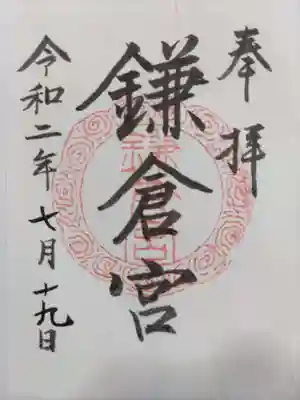 奉拝
鎌倉宮
令和二年七月十九日